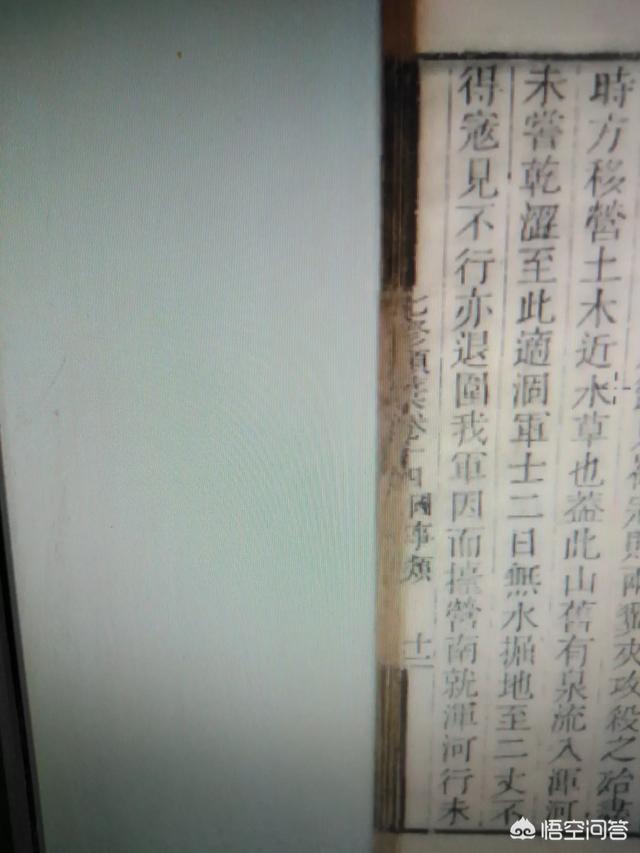 夾攻殺之殆
時方移營土木近水草也蓋此山舊有泉流入渾河
未嘗乾澀至此適涸軍士二日無水掘地至二丈不
得寇見不行亦退圍我軍因而擡營南就渾河行未
卷十四 國事類 十二
悟空问答